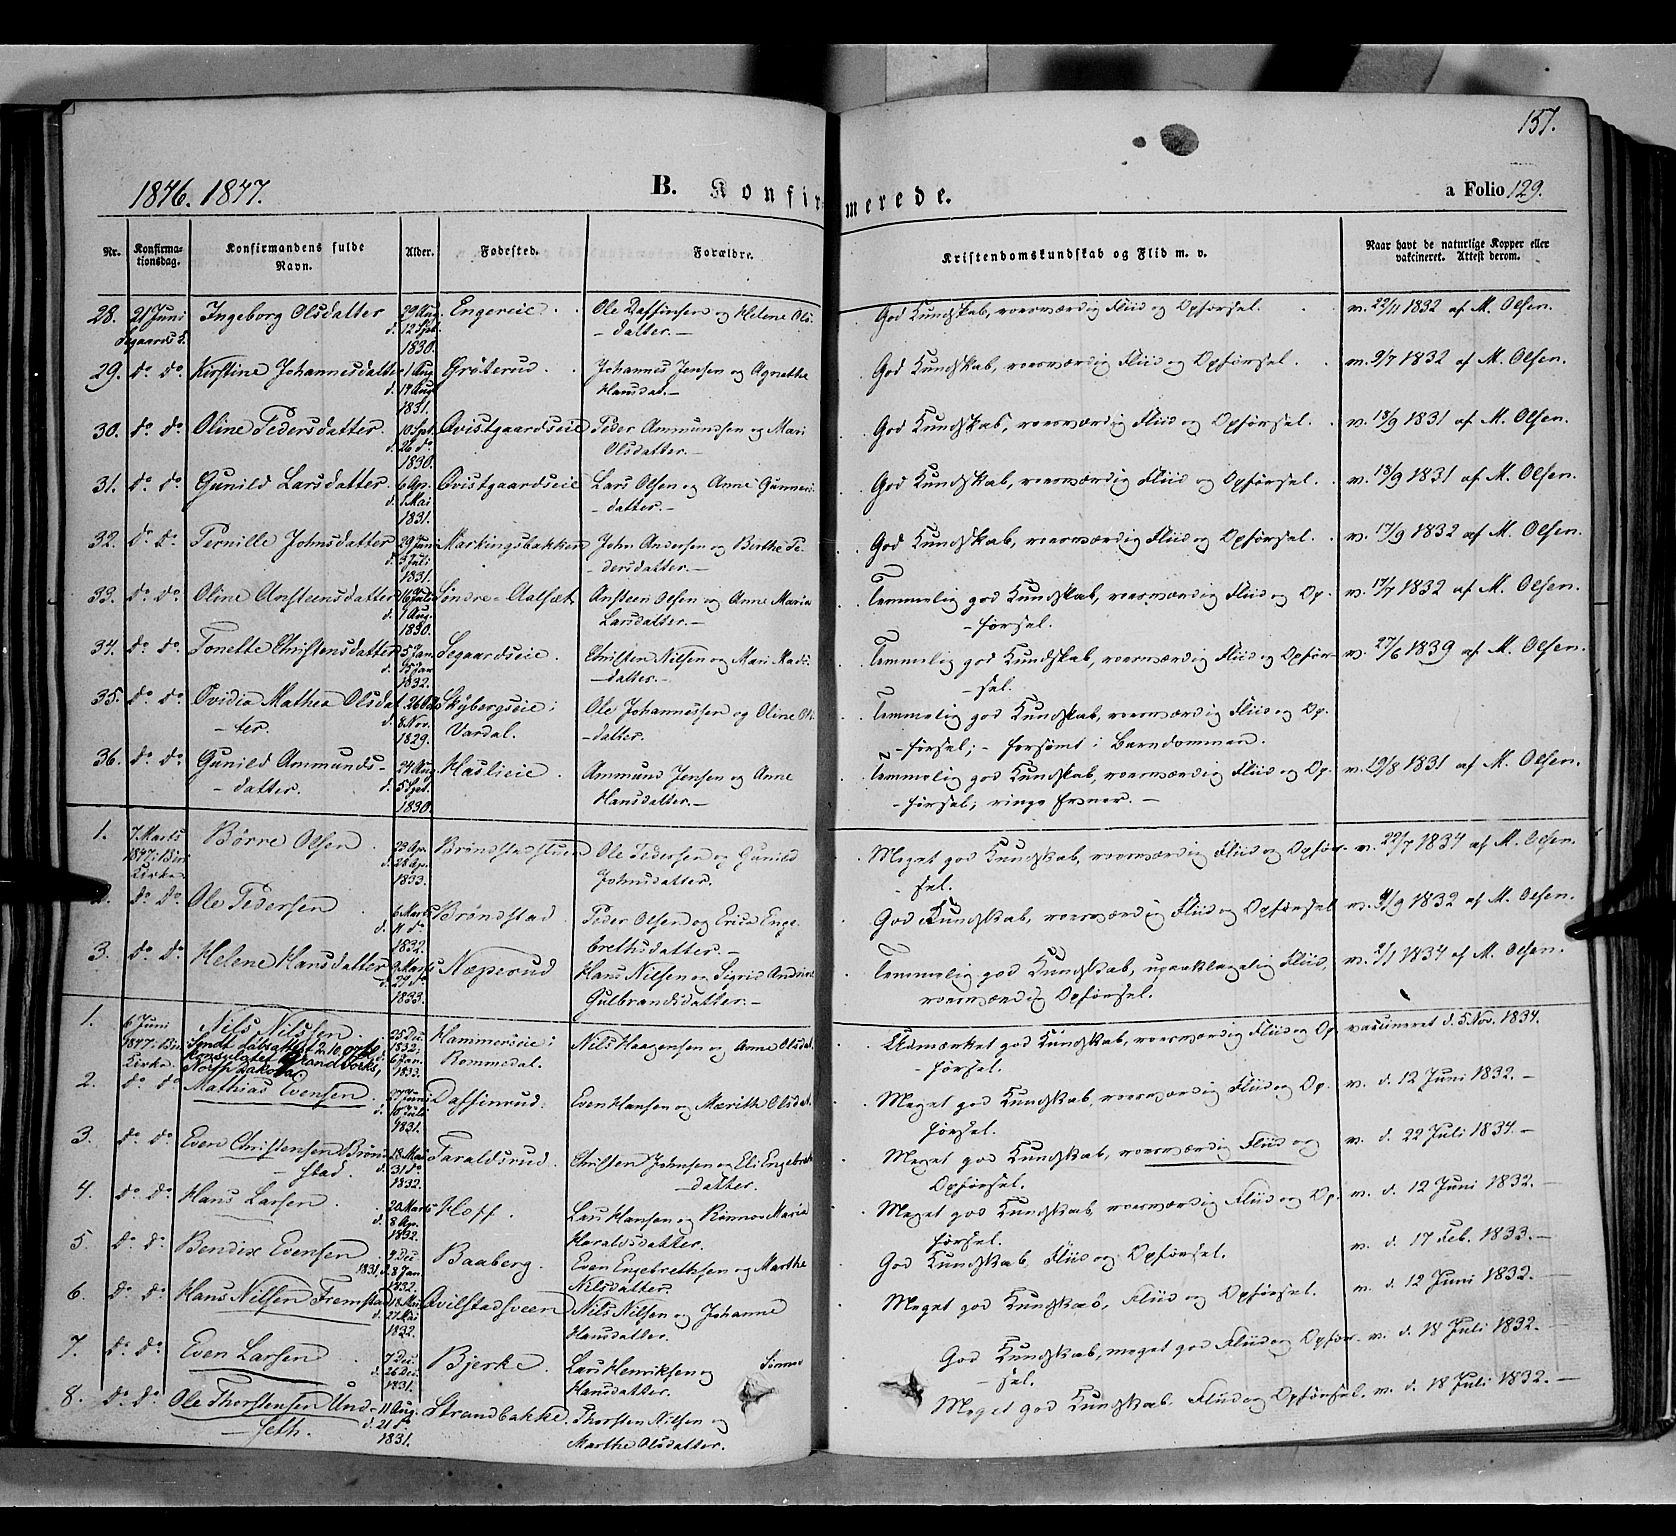 157.
1846. 1847.
B. Konfirmerede.
a Folio 129.
Nr. Konfirma-tionsdag. Konfirmandens fulde Navn. Alder. Fødested. Forældre. Kristendomskundskab og Flid m. v. Naar havt de naturlige Kopper eller vaktineret. Attest derom.
28. 21 Juni Segaards K. Ingeborg Olsdatter 29 Aug. d. 12 Spt. 1830. Engereie. Ole Daffinsen og Helene Ols-datter.— God Kundskab, roesværdig Fliid og Opførsel. v. 22/11 1832 af M. Olsen.
29. do do Kirstine Johannesdatter 1 Aug. d. 14 Aug. 1831. Grøterud. Johannes Jensen og Agnethe Hansdat.— God Kundskab, roesværdig Fliid og Opførsel. v. 9/7 1832 af M. Olsen.
30. do do Oline Pedersdatter. 10 Spt. d. 26 do 1830. Qvistgaardseie Peder Ammundsen og Mari Olsdatter.— God Kundskab, roesværdig Fliid og Opførsel. v. 18/9 1831 af M. Olsen.
31. do do Gunild Larsdatter 6 Ap. d. 1 Mai 1831. Qvistgaardseie Lars Olsen og Anne Gunneri-datter.— God Kundskab, roesværdig Fliid og Opførsel. v. 18/9 1831 af M. Olsen.
32. do do Pernille Johnsdatter 29 Juni d. 3 Juli 1831. Markingsbakken John Andersen og Birthe Pe-dersdatter.— God Kundskab, roesværdig Fliid og Opførsel. v. 17/9 1832 af M. Olsen.
33. do do Oline Ansteensdatter 16 Juli d. 9 Aug. 1830. Søndre Aalset Ansteen Olsen og Anne Maria Larsdatter.— Temmelig god Kundskab, roesværdig Fliid og Op-førsel. v. 17/7 1832 af M. Olsen.
34. do do Tonette Christensdatter 5 Jan. d. 15 Jan. 1832. Segaardseie. Christen Nilsen og Mari Mads-datter.— Temmelig god Kundskab, roesværdig Fliid og Opfør-sel. v. 27/6 1839 af M. Olsen.
35. do do Ovidia Mathea Olsdat-ter. 26 Okt. d. 8 Nov. 1829. Skybergseie i Vardal. Ole Johannessen og Oline Ols-datter.— Temmelig god Kundskab, roesværdig Fliid og Op-førsel; forsømt i Barndommen.
36. do do Gunild Ammunds-datter. 24 Aug. d. 5 Spt. 1830. Haslieie. Ammund Jensen og Anne Hansdatter.— Temmelig god Kundskab, roesværdig Fliid og Op-førsel; ringe Evner.— v. 19/8 1831 af M. Olsen.
1. 7 Marts 1847. Biri Kirke Børre Olsen. 23 Ap. d. 28 Ap. 1833. Brøndstadstuen Ole Pedersen og Gunild Johnsdatter. Meget god Kundskab, roesværdig Fliid og Opfør-sel. v. 22/7 1834 af M. Olsen.
2. do do Ole Pedersen 6 Marts d. 11 do 1832. Brøndstad. Peder Olsen og Erica Enge-brethsdatter.— God Kundskab, roesværdig Fliid og Opførsel v. 9/9 1832 af M. Olsen.
3. do do Helene Hansdatter 9 Marts d. 27 do 1833. Næperud Hans Nilsen og Sigrid Andrine Gulbrandsdatter.— Temmelig god Kundskab, upaaklagelig Fliid, roesværdig Opførsel. v. 2/1 1834 af M. Olsen.
1. 6 Juni 1847. Biri Kirke. Nils Nilssen Grand Forks, North Dakota 25 Dec. 1832; d. 6 Jan. 1833. Hammerseie i Rommedal. Nils Haagensen og Anne Olsdat. Udmærket god Kundskab, roesværdig Fliid og Op-førsel. vaccineret d. 5 Nov. 1834.
2. do do Mathias Evensen. 27 Juni d. 10 Juli 1831. Daffinrud. Even Hansen og Marithe Olsdat. Meget god Kundskab, roesværdig Fliid og Op-førsel. v. d. 12 Juni 1832.—
3. do do Even Christensen Brønd-stad. 18 Mai d. 31 do 1832. Taraldsrud. Christen Johnsen og Eli Engebret-datter. Meget god Kundskab, roesværdig Fliid og Opførsel. v. d. 22 Juli 1834.—
4. do do Hans Larsen. 20 Marts d. 8 Ap. 1832. Hoff. Lars Hansen og Rønnog Maria Haraldsdatter. Meget god Kundskab, roesværdig Fliid og Op-førsel. v. d. 12 Juni 1832.—
5. do do Bendix Evensen 4 Dec. 1831, d. 8 Jan 1832. Baaberg. Even Engebrethsen og Marthe Nilsdatter. God Kundskab, Fliid og Opførsel. v. d. 17 Feb. 1833.—
6. do do Hans Nilsen Fremstad 18 Mai d. 27 Mai 1832. Qvilstadsveen Nils Nilsen og Johanne Hansdatter. Meget god Kundskab, Fliid og Opførsel. v. d. 12 Juni 1832.—
7. do do Even Larsen 7 Dec. d. 26 Dec. 1831. Bjerke. Lars Henriksen og Hansdatter. God Kundskab, meget god Fliid og Opfør-sel. v. d. 18 Juli 1832.—
8. do do Ole Thorstensen Und-seth. 11 Aug. d. 21 do 1831. Strandbakke. Thorsten Nilsen og Marthe Olsdatter. Meget god Kundskab, Fliid og Opførsel. v. d. 18 Juli 1832.—